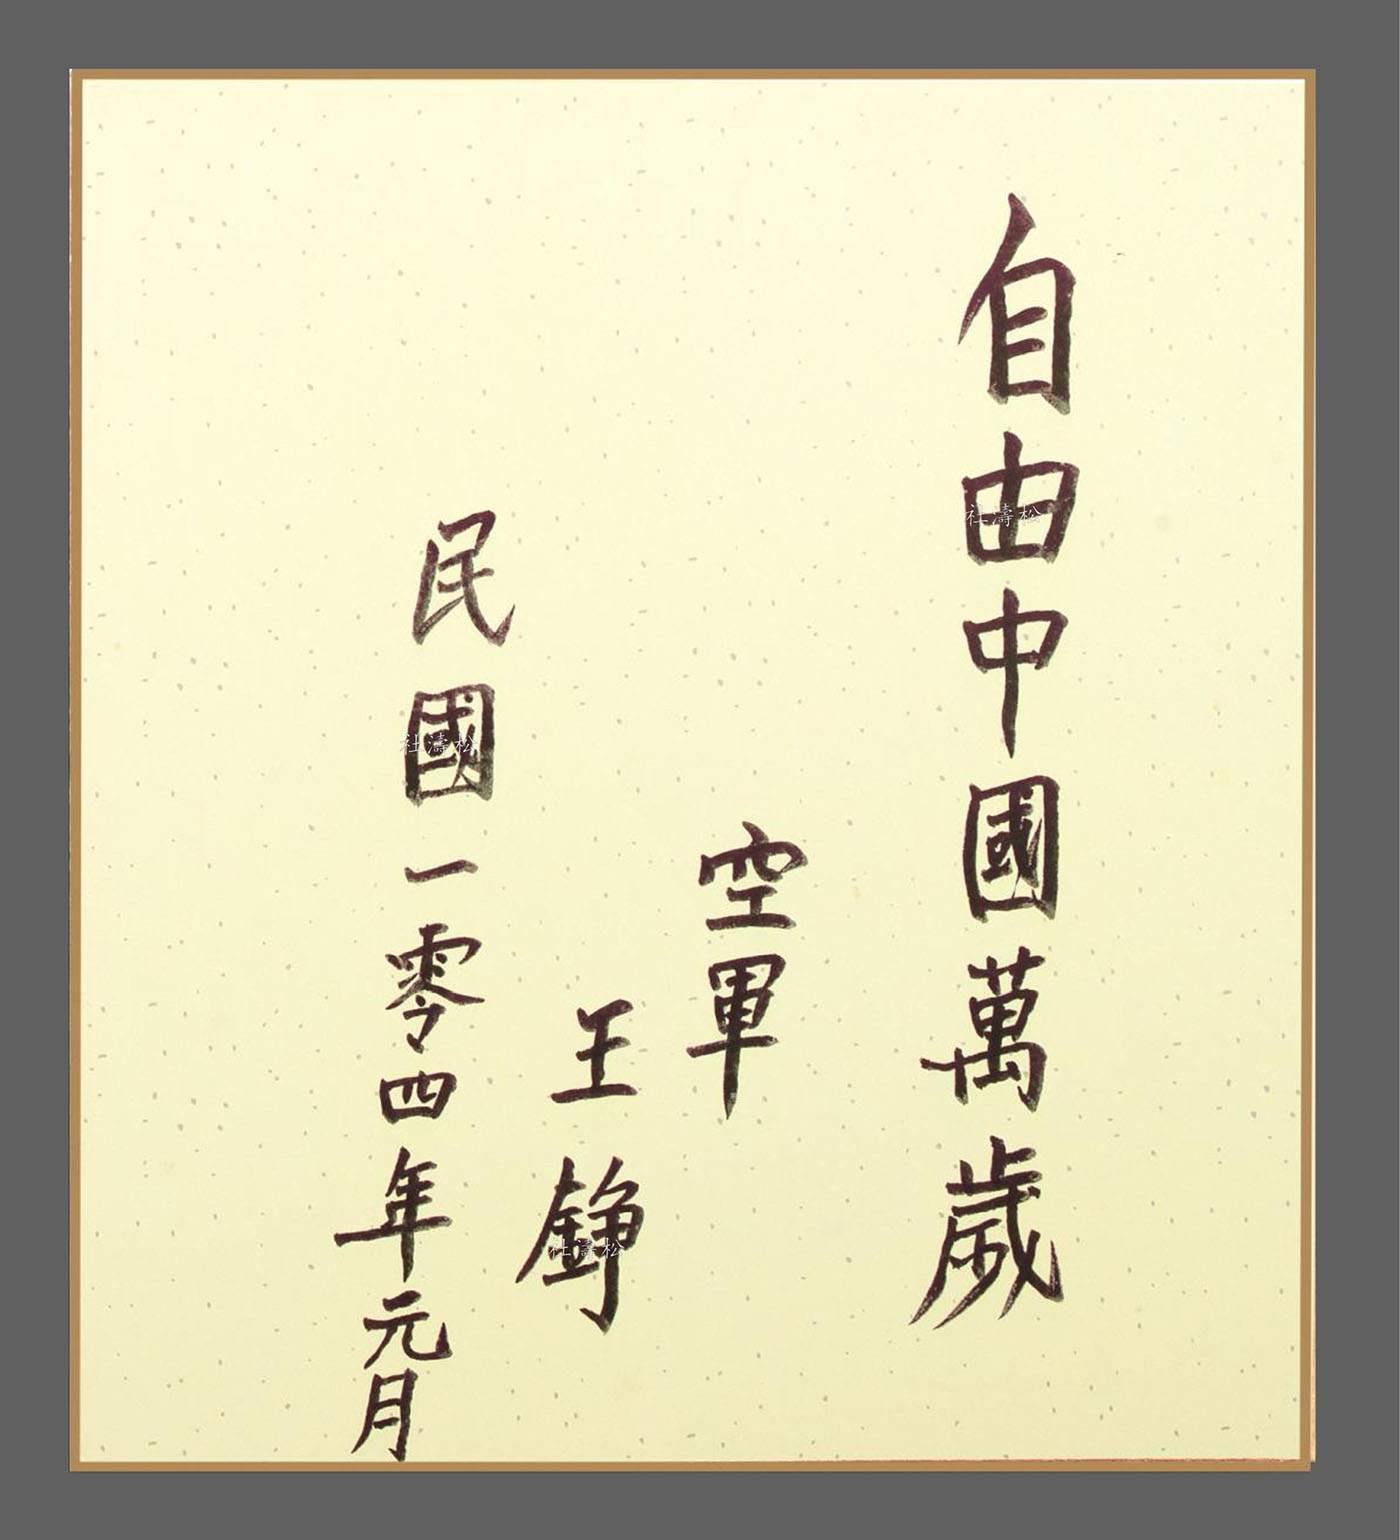 自由中國萬歲
空軍
王錚
民國一零四年元月
松濤社
松濤社
松濤社